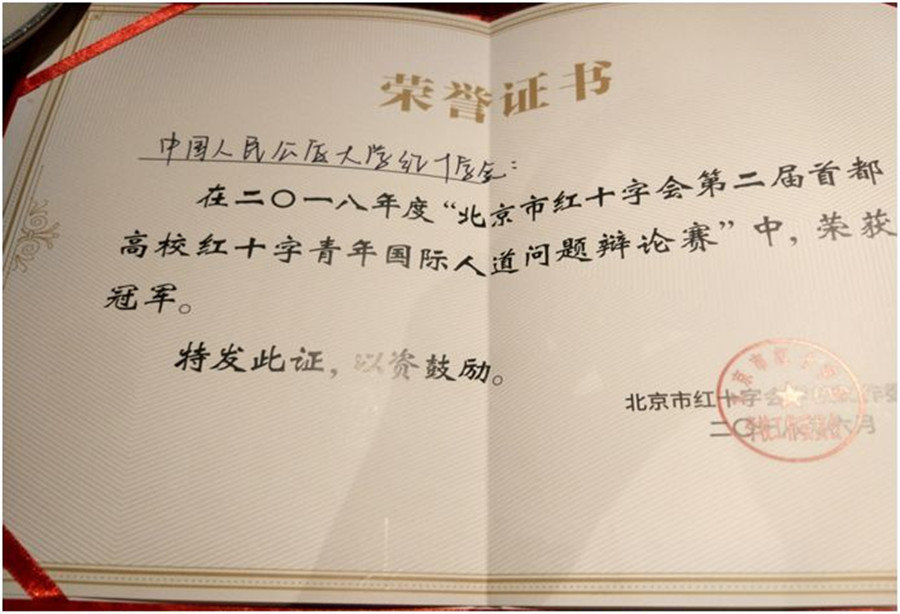 荣誉证书
中国人民公安大学红十字会：
在二〇一八年度“北京市红十字会第二届首都
高校红十字青年国际人道问题辩论赛”中，荣获
冠军。
特发此证，以资鼓励。
北京市红十字会
二〇一八年六月